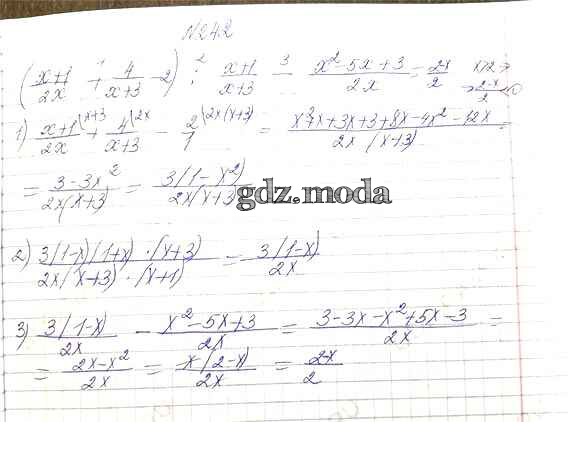 №242
((x+1)/2x + 4/(x+3) - 2) : (x+1)/(x+3) - (x²-5x+3)/2x = (2-x)/2 x>2 →
→ (2-x)/2 < 0
1) (x+1)/2x \x+3 + 4/(x+3) \2x - 2/1 \2x(x+3) = (x²+x+3x+3+8x-4x²-12x)/(2x(x+3)) =
= (3-3x²)/(2x(x+3)) = 3(1-x²)/(2x(x+3))
gdz.moda
2) (3(1-x)(1+x)·(x+3))/(2x(x+3)·(x+1)) = 3(1-x)/2x
3) 3(1-x)/2x - (x²-5x+3)/2x = (3-3x-x²+5x-3)/2x =
= (2x-x²)/2x = x(2-x)/2x = (2-x)/2